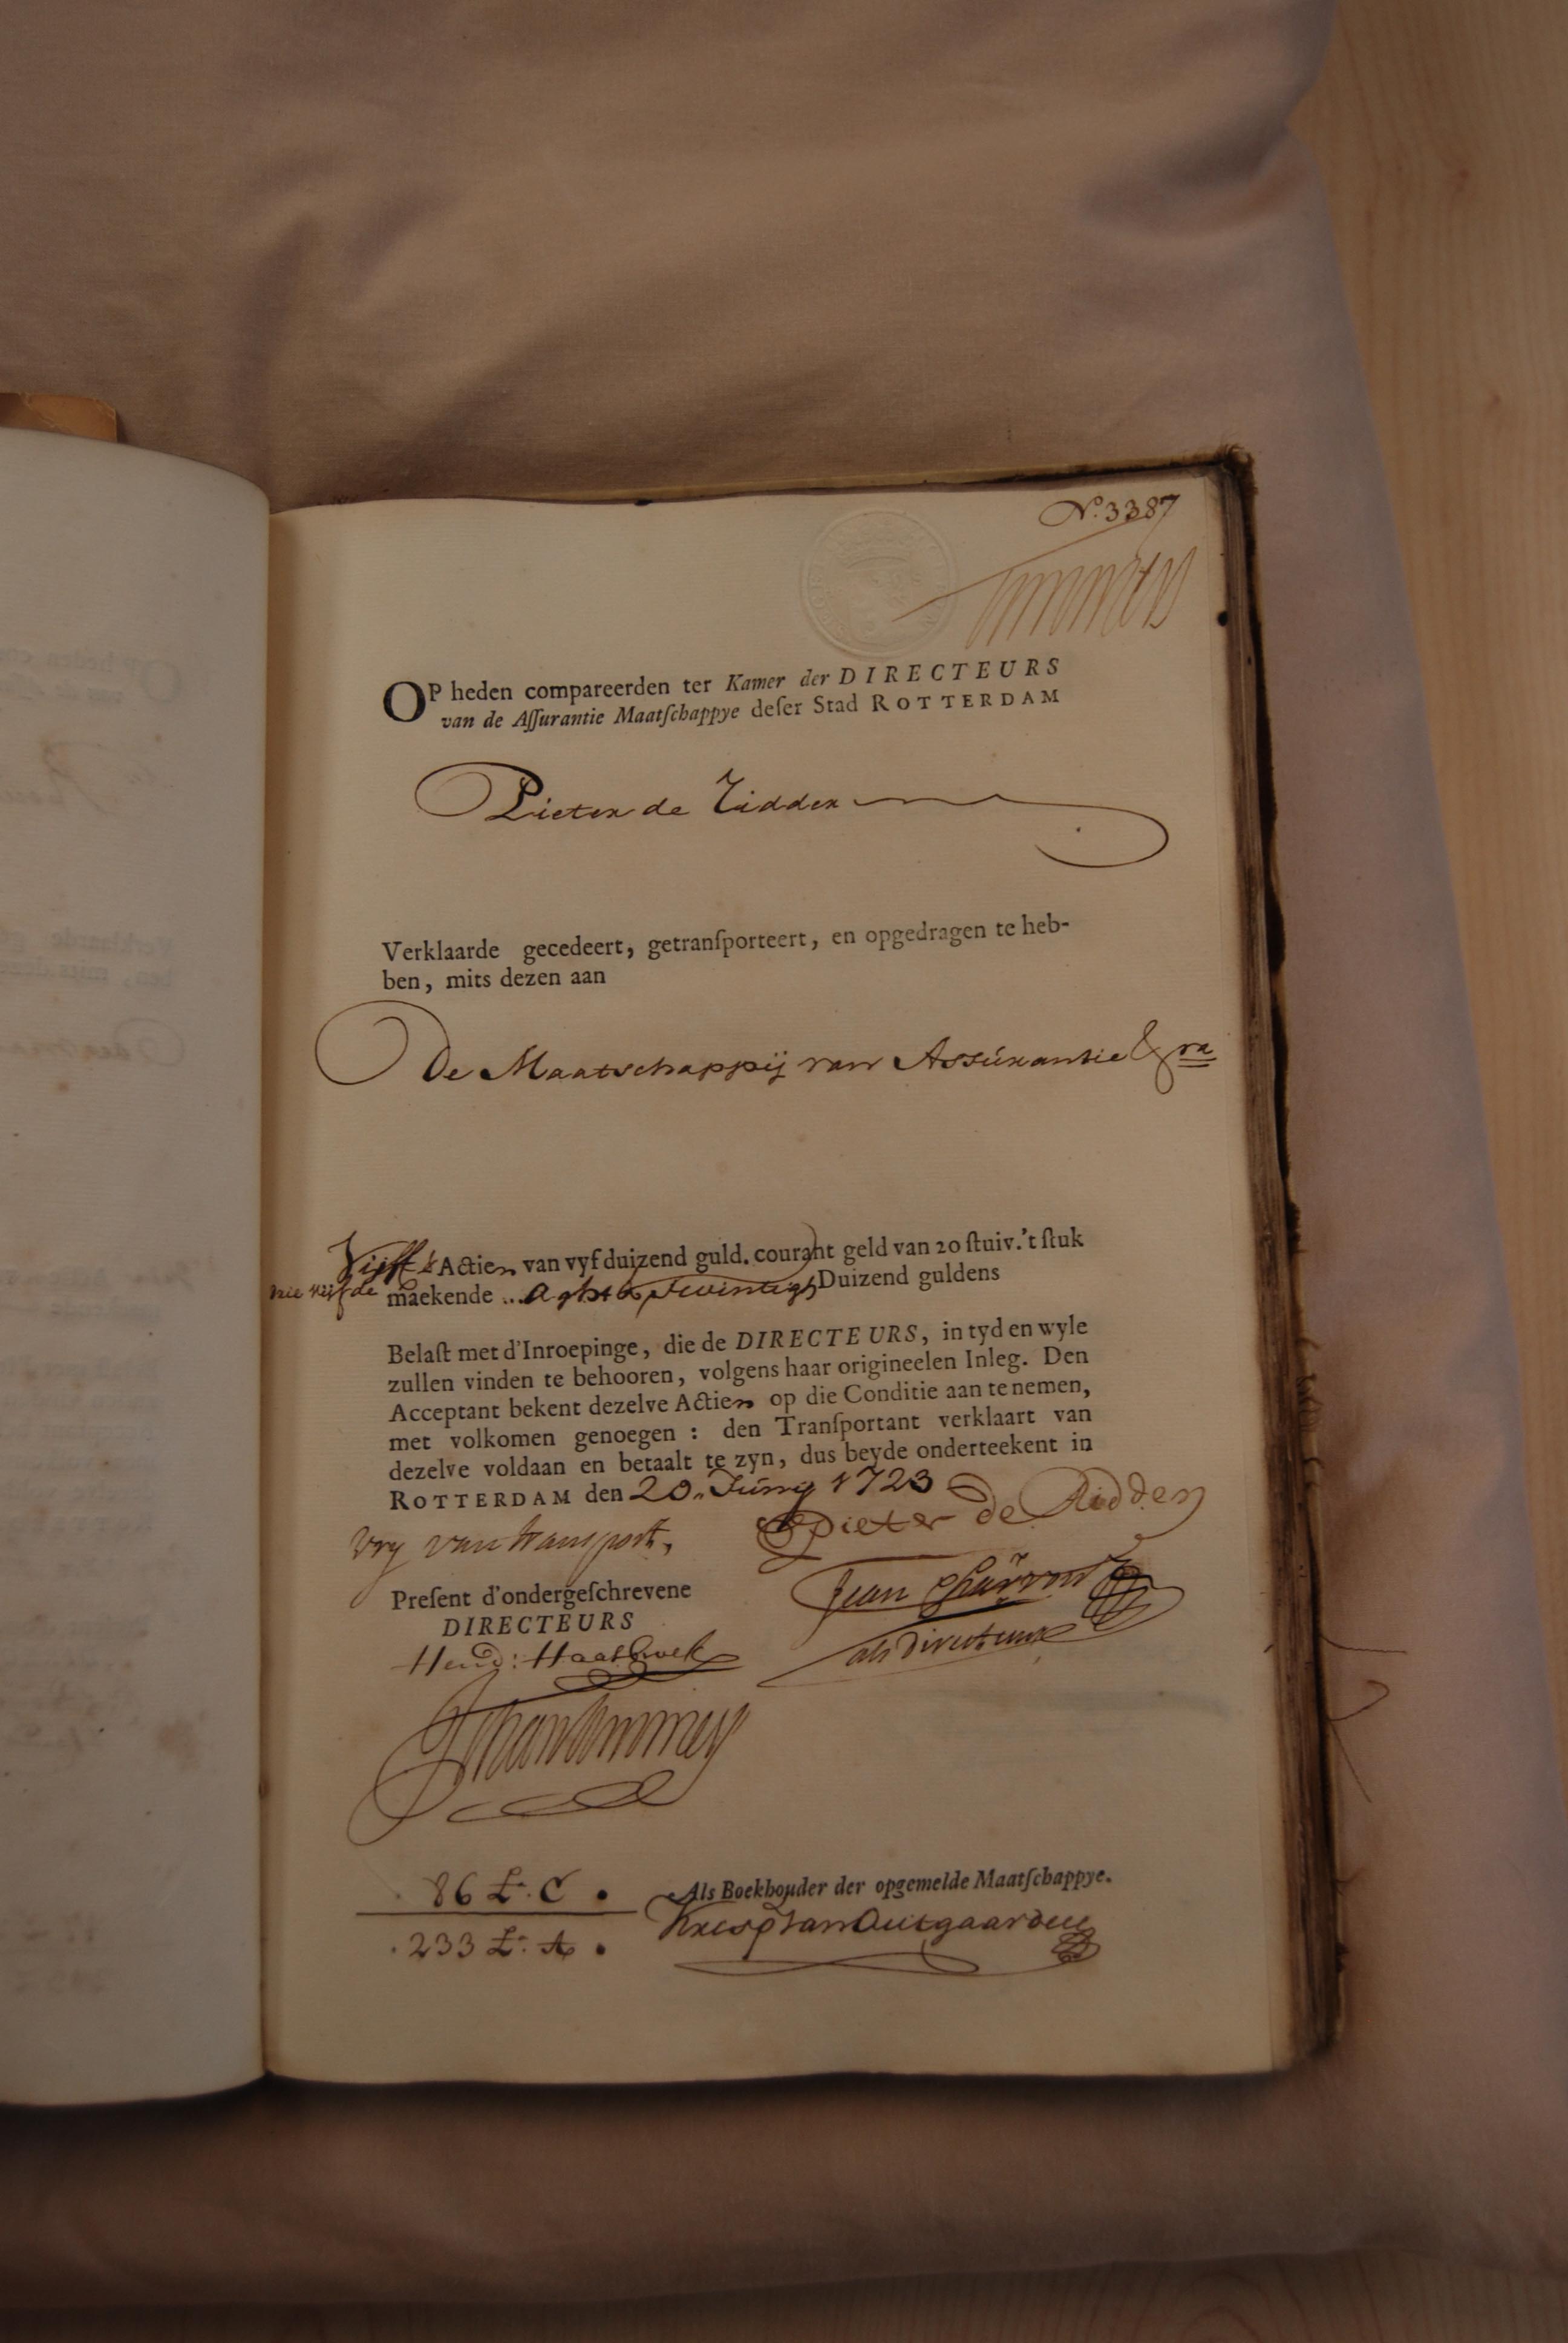 N.º 3387
OP heden compareerden ter Kamer der DIRECTEURS
van de Aſſurantie Maatſchappye deſer Stad ROTTERDAM
Pieter de Ridder
Verklaarde gecedeert, getranſporteert, en opgedragen te heb-
ben, mits dezen aan
De Maatschappij van Assúrantie &ra
Vijff Actien van vyf duizend guld. courant geld van 20 ſtuiv. 't ſtuk
drie vijfde maekende .. Aght & Twintigh Duizend guldens
Belaſt met d'Inroepinge, die de DIRECTEURS, in tyd en wyle
zullen vinden te behooren, volgens haar origineelen Inleg. Den
Acceptant bekent dezelve Actien op die Conditie aan te nemen,
met volkomen genoegen : den Tranſportant verklaart van
dezelve voldaan en betaalt te zyn, dus beyde onderteekent in
ROTTERDAM den 20. Júny 1723
Pieter de Ridder
vry van transport,
Jean
als directeur
Preſent d'ondergeſchrevene
DIRECTEURS
Hend: Haastwek
86 Lr. C.
233 Lr. A.
Als Boekhouder der opgemelde Maatſchappye.
van Outgaarden